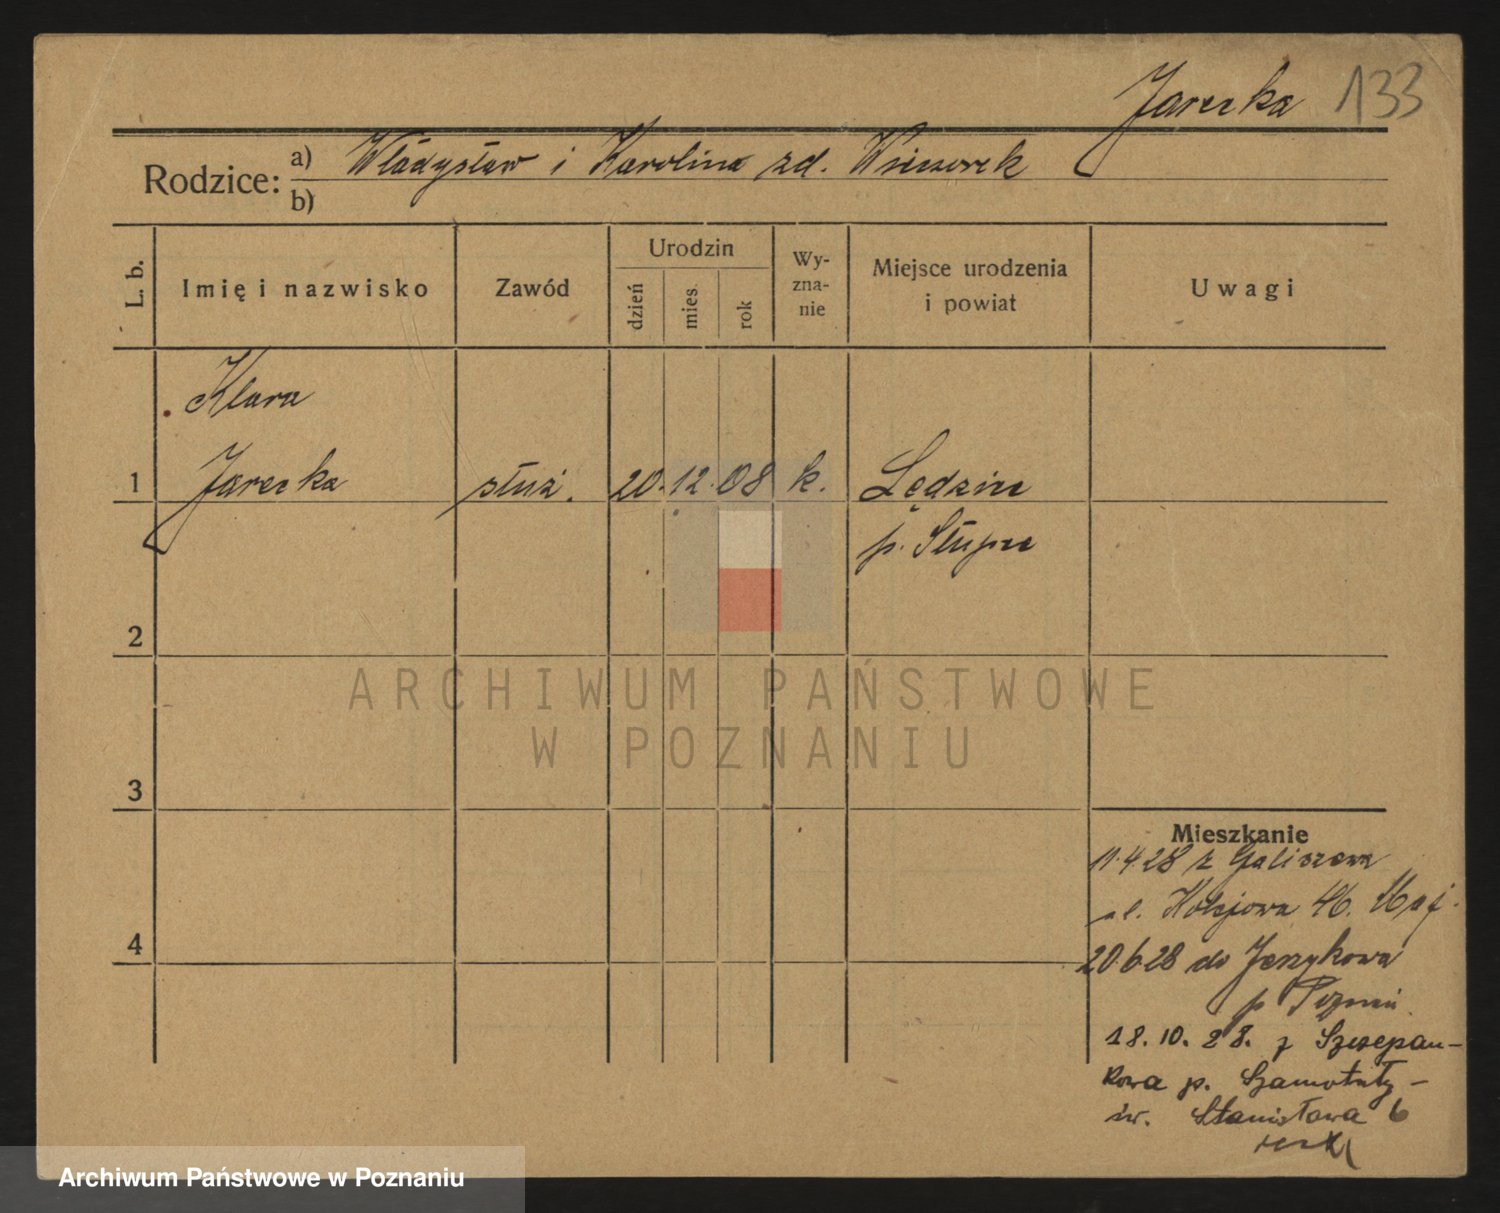 Jarecka 133
Rodzice: a) Władysław i Karolina zd. Wieczorek
b)
L. b. Imię i nazwisko Zawód Urodzin dzień mies. rok Wy-
zna-
nie Miejsce urodzenia
i powiat Uwagi
Klara
1 Jarecka służ. 20. 12. 08 k. Lędzin
p. Słupca
2
ARCHIWUM PAŃSTWOWE
W POZNANIU
3
Mieszkanie
11.4.28 z
ul. Kolejowa 46.
4
20.6.28 do Jerzykowa
p Poznań
18.10.28. z Szczepan-
kowa p. Szamotuły –
św. Stanisława 6
Archiwum Państwowe w Poznaniu